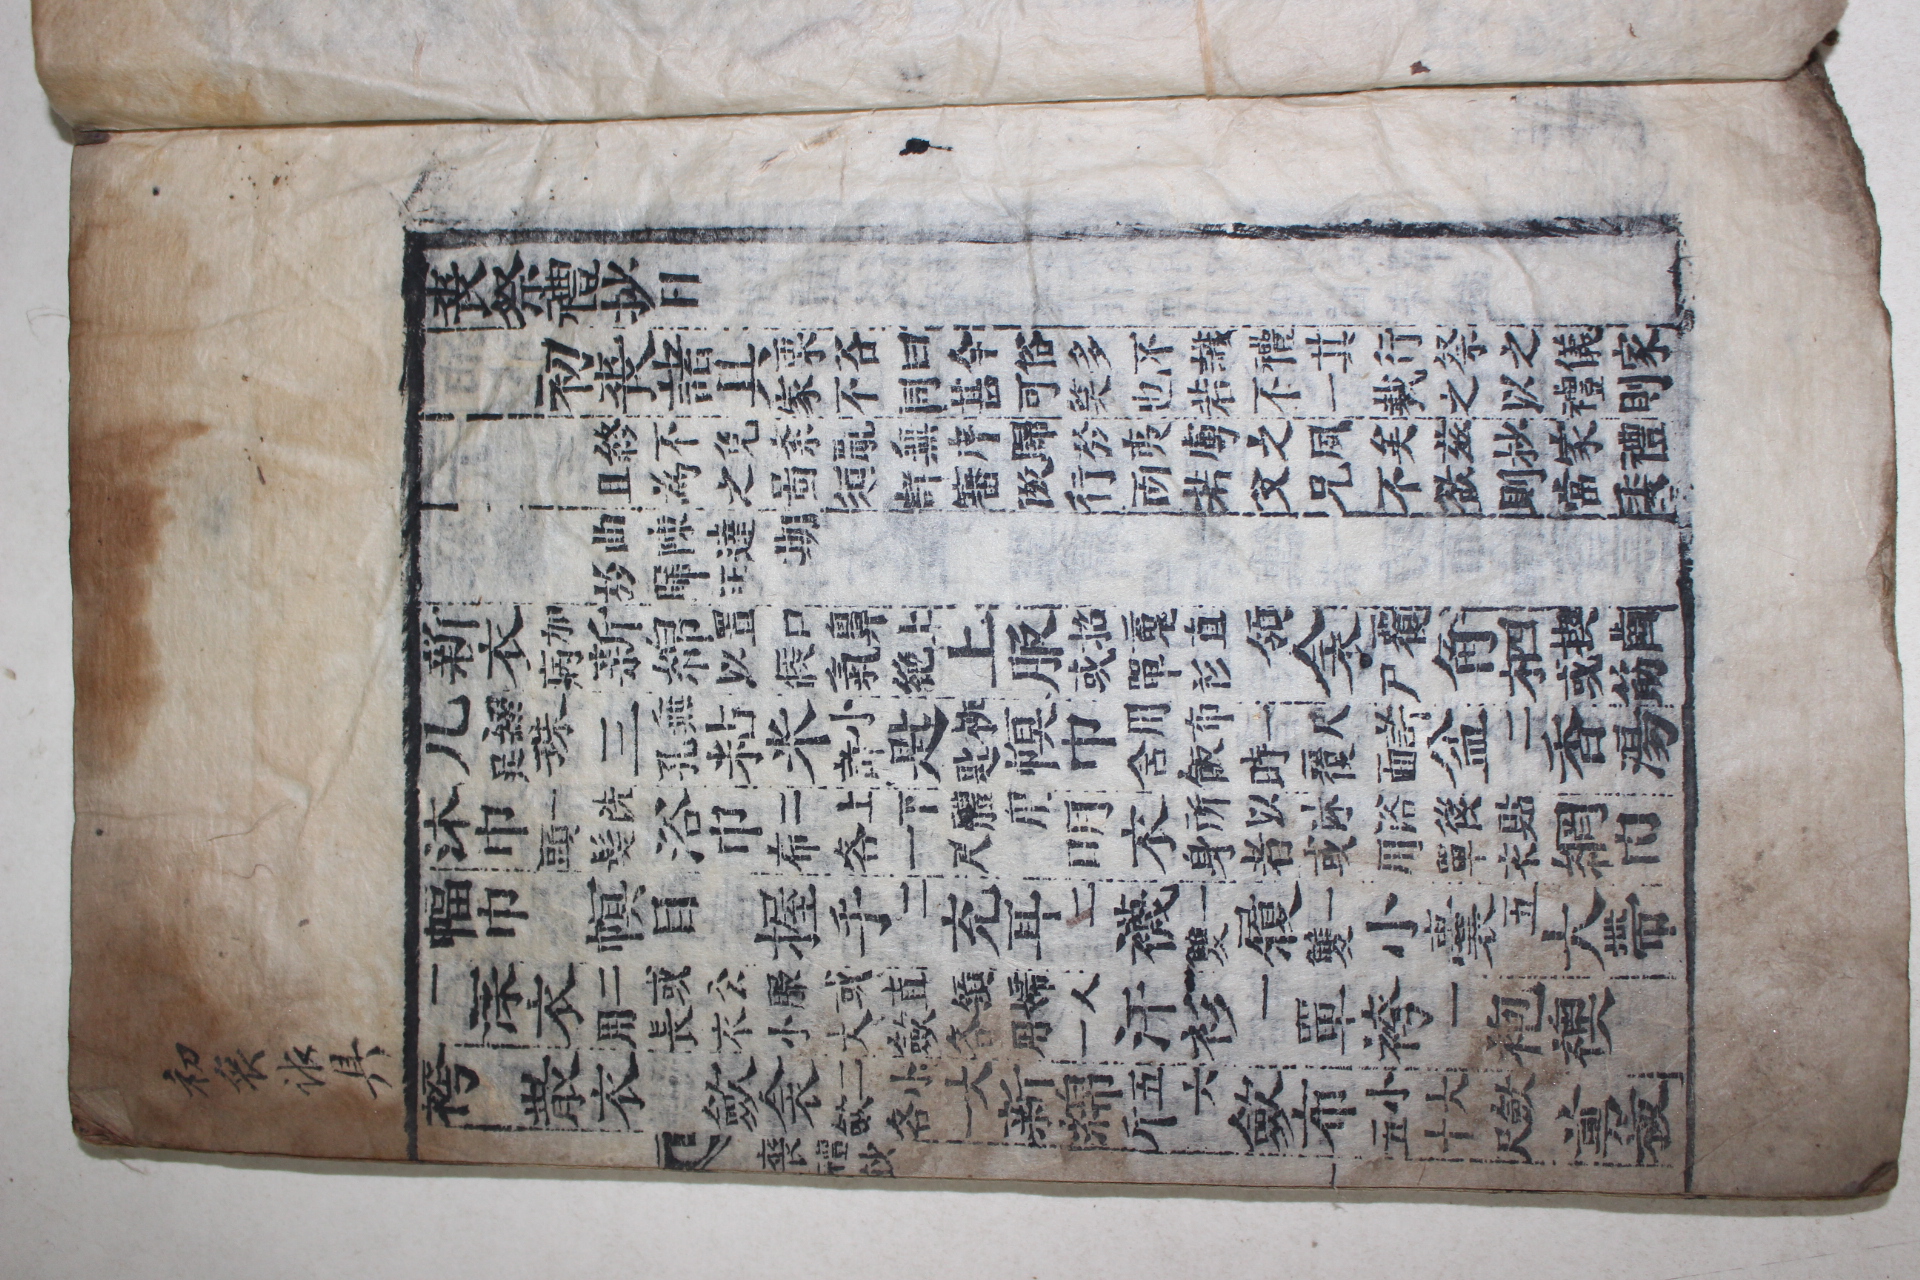 喪祭禮抄目
初喪諸具 栗谷曰今俗多不識禮其行祭之儀家
家不同甚可笑也若不一裁之以禮則
終不免紊亂無序歸於夷虜之風矣玆抄家禮
且爲之圖須詳審倣行而若父兄不欲則當委
曲陳達期
於歸正
新衣 加新 新綿 置口鼻上 以候氣絶 上服 招䰟直領 或單衫 衾 覆尸 角柶 楔齒 或筯
几 綴足 珠三 無孔 粘米 小許 匙 柳匙 幎巾 用布一尺許 含飯時覆面 盆二 香湯
沐巾一 洗頭髮 浴巾二 上下體用 布各一尺 明衣 所以沐浴後貼 身者或用單衣 網巾
幅巾 幎目 握手二 充耳二 襪一雙 履一雙 小囊五 大帶
一 深衣 二或公服或直領婦人 用長衣小大斂各用一 汗衫一 單袴一 袍襖
袴 散衣 斂衾二 小大斂各一 新綿 五六斤 斂布 小大斂五十尺
喪禮抄 一
初喪諸具